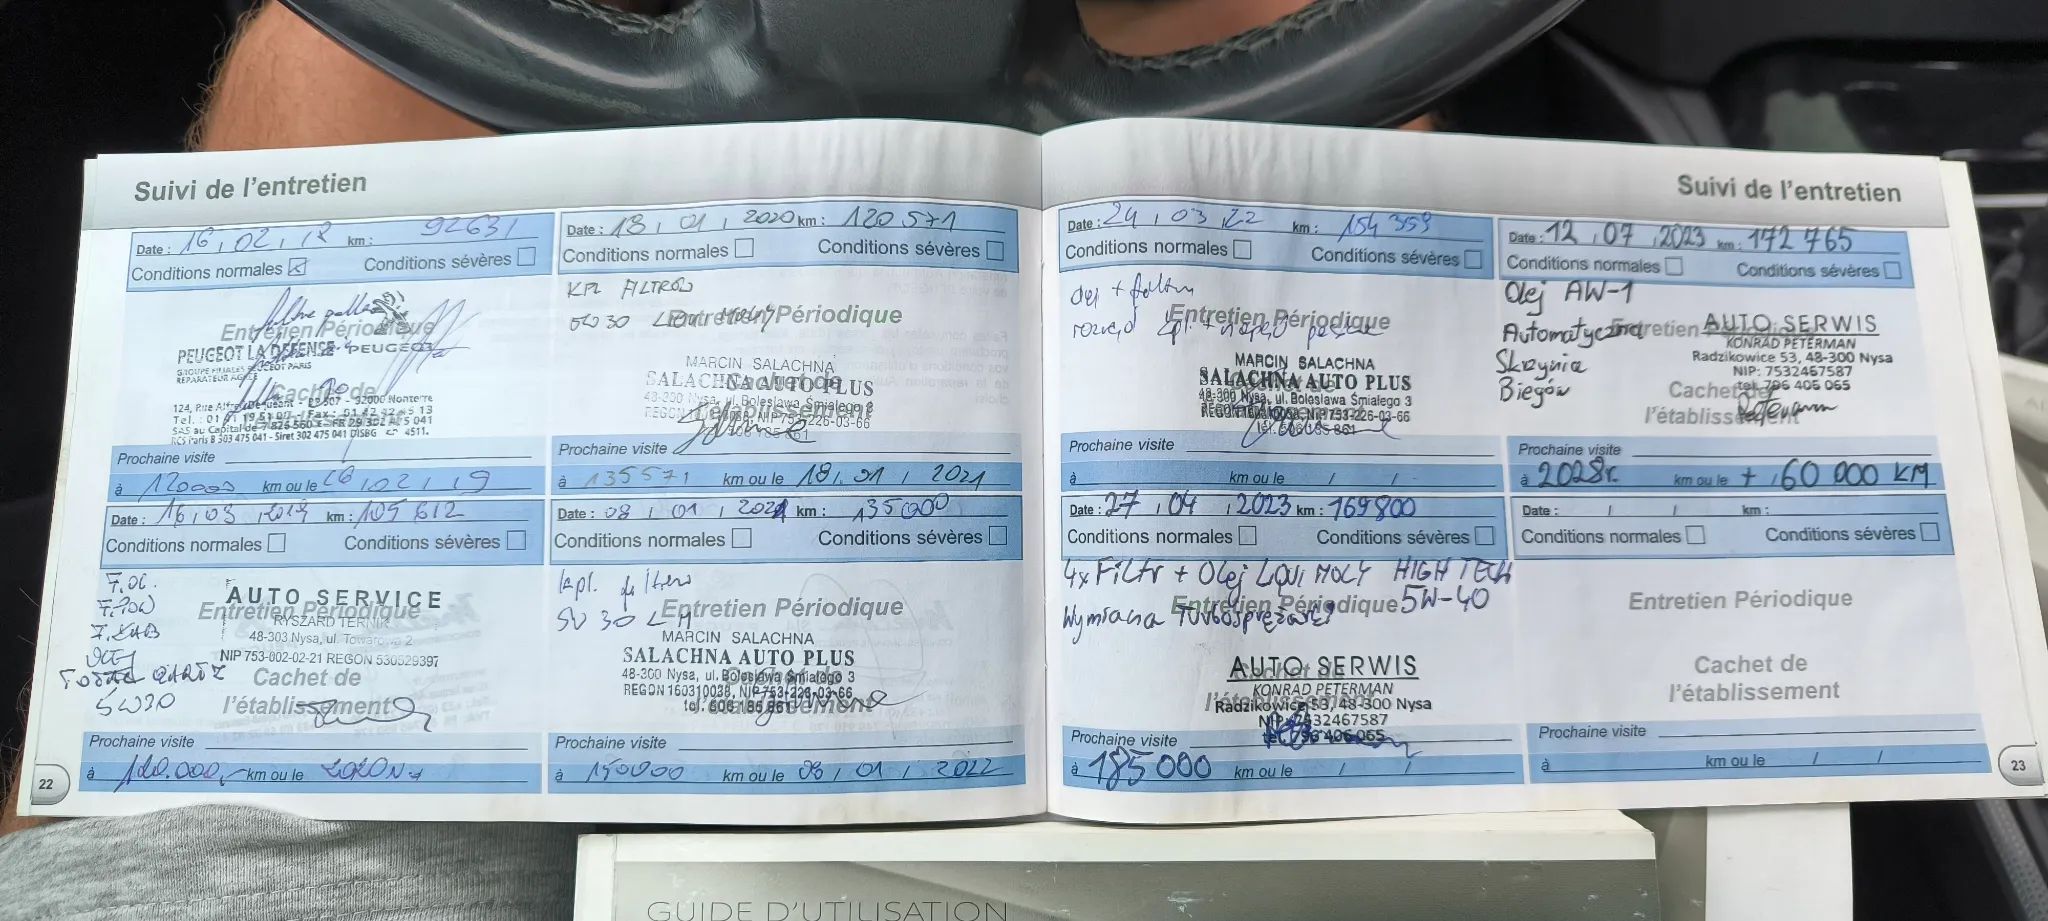 Suivi de l'entretien
Date : 16, 02, 18 km : 92631
Conditions normales Conditions sévères
Entretien Périodique
PEUGEOT LA DEFENSE PEUGEOT
REPARATEUR AGREE
Cachet de
124, Rue - 92000 Nanterre
RCS Paris B 302 475 041 - Siret 302 475 041
Prochaine visite
à 120000 km ou le 16, 02, 19
Date : 16, 03, 2019 km : 105 612
Conditions normales Conditions sévères
F. OL.
F. KAB
OLEJ
5W30
AUTO SERVICE
Entretien Périodique
RYSZARD TERNIK
48-303 Nysa, ul. Towarowa 2
NIP 753-002-02-21 REGON 530529397
Cachet de
l'établissement
Prochaine visite
à 120.000,- km ou le 2020
22
Date : 18, 01, 2020 km : 120 571
Conditions normales Conditions sévères
KPL FILTRÓW
5W30 LIQUI MOLY
Entretien Périodique
MARCIN SALACHNA
SALACHNA AUTO PLUS
Cachet de
48-300 Nysa, ul. Bolesława Śmiałego 3
l'établissement
Prochaine visite
à 135571 km ou le 18, 01, 2021
Date : 08, 01, 2021 km : 135000
Conditions normales Conditions sévères
kpl. filtrów
5W30 LM
Entretien Périodique
MARCIN SALACHNA
SALACHNA AUTO PLUS
Cachet de
48-300 Nysa, ul. Bolesława Śmiałego 3
REGON 160310038, NIP 753-226-03-66
tel. 606 185 861
l'établissement
Prochaine visite
à 150000 km ou le 08, 01, 2022
Suivi de l'entretien
Date : 24, 03, 22 km : 154 359
Conditions normales Conditions sévères
olej + filtry
rozrząd kpl. + napęd
Entretien Périodique
MARCIN SALACHNA
SALACHNA AUTO PLUS
48-300 Nysa, ul. Bolesława Śmiałego 3
tel. 606 185 861
Prochaine visite
à km ou le / /
Date : 27, 04, 2023 km : 169800
Conditions normales Conditions sévères
4x Filtr + Olej LIQUI MOLY HIGH TECH
5W-40
Entretien Périodique
Wymiana Turbosprężarki
AUTO SERWIS
Cachet de
KONRAD PETERMAN
l'établissement
Radzikowice 53, 48-300 Nysa
NIP: 7532467587
tel. 796 406 065
Prochaine visite
à 185000 km ou le / /
Date : 12, 07, 2023 km : 172 765
Conditions normales Conditions sévères
Olej AW-1
Automatyczna
Skrzynia
Biegów
Entretien
AUTO SERWIS
KONRAD PETERMAN
Radzikowice 53, 48-300 Nysa
NIP: 7532467587
tel. 796 406 065
Cachet
l'établissement
Prochaine visite
à 2028r. km ou le + 60 000 KM
Date : / / km :
Conditions normales Conditions sévères
Entretien Périodique
Cachet de
l'établissement
Prochaine visite
à km ou le / /
23
GUIDE D'UTILISATION